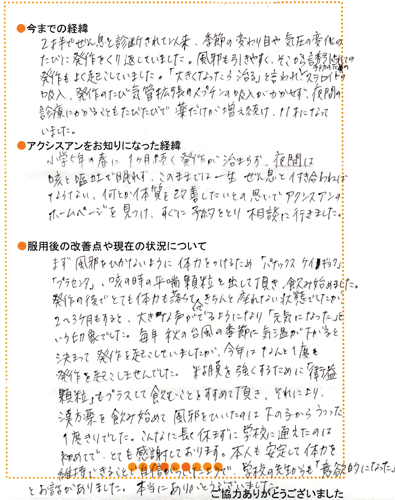 ●今までの経緯
2才半でぜん息と診断されて以来、季節の変わり目や気圧の変化の
たびに発作をくり返していました。風邪も引きやすく、そこから誘発されての
発作もよく起こしていました。「大きくなったら治る」と言われ ステロイドの
吸入、発作のたび気管拡張の の吸入がかかせず、夜間の
診療にかかることもたびたびで 薬だけが増え続け、11才になって
いました。
●アクシスアンをお知りになった経緯
小学 年の春に 1ヶ月 く発作が治まらず、夜間は
咳と嘔吐で眠れず、このままでは一生 ぜん息と付き合わねば
ならない、何とか体質を改善したいとの思いでアクシスアンの
ホームページを見つけ、すぐに予約をとり相談に行きました。
●服用後の改善点や現在の状況について
まず風邪をひかないように 体力をつけるため「パナックス ケイ
「プラセンタ」、咳の時の平喘顆粒を出して頂き、飲み始めました。
発作の後でとても体力も落ちて、きちんと座れない状態でしたが
2〜3ヶ月もすると、大きな声がでるようになり「元気になった」と
いう印象でした。毎年 秋の台風の季節に気温が下がると
決まって 発作を起こしていましたが、今年はなんと1度も
発作を起こしませんでした。 を強くするために「衛益
顆粒」もプラスして飲むことをすすめて頂き、それにより、
漢方薬を飲み始めて 風邪をひいたのは下の子からうつった
1度きりでした。こんなに長く休まずに学校に通えたのは
初めてで、とても感謝しております。本人も安定して体力を
維持できること 、学校の先生からも「意欲的になった」
とお話がありました。本当にありがとうございました。
ご協力ありがとうございました